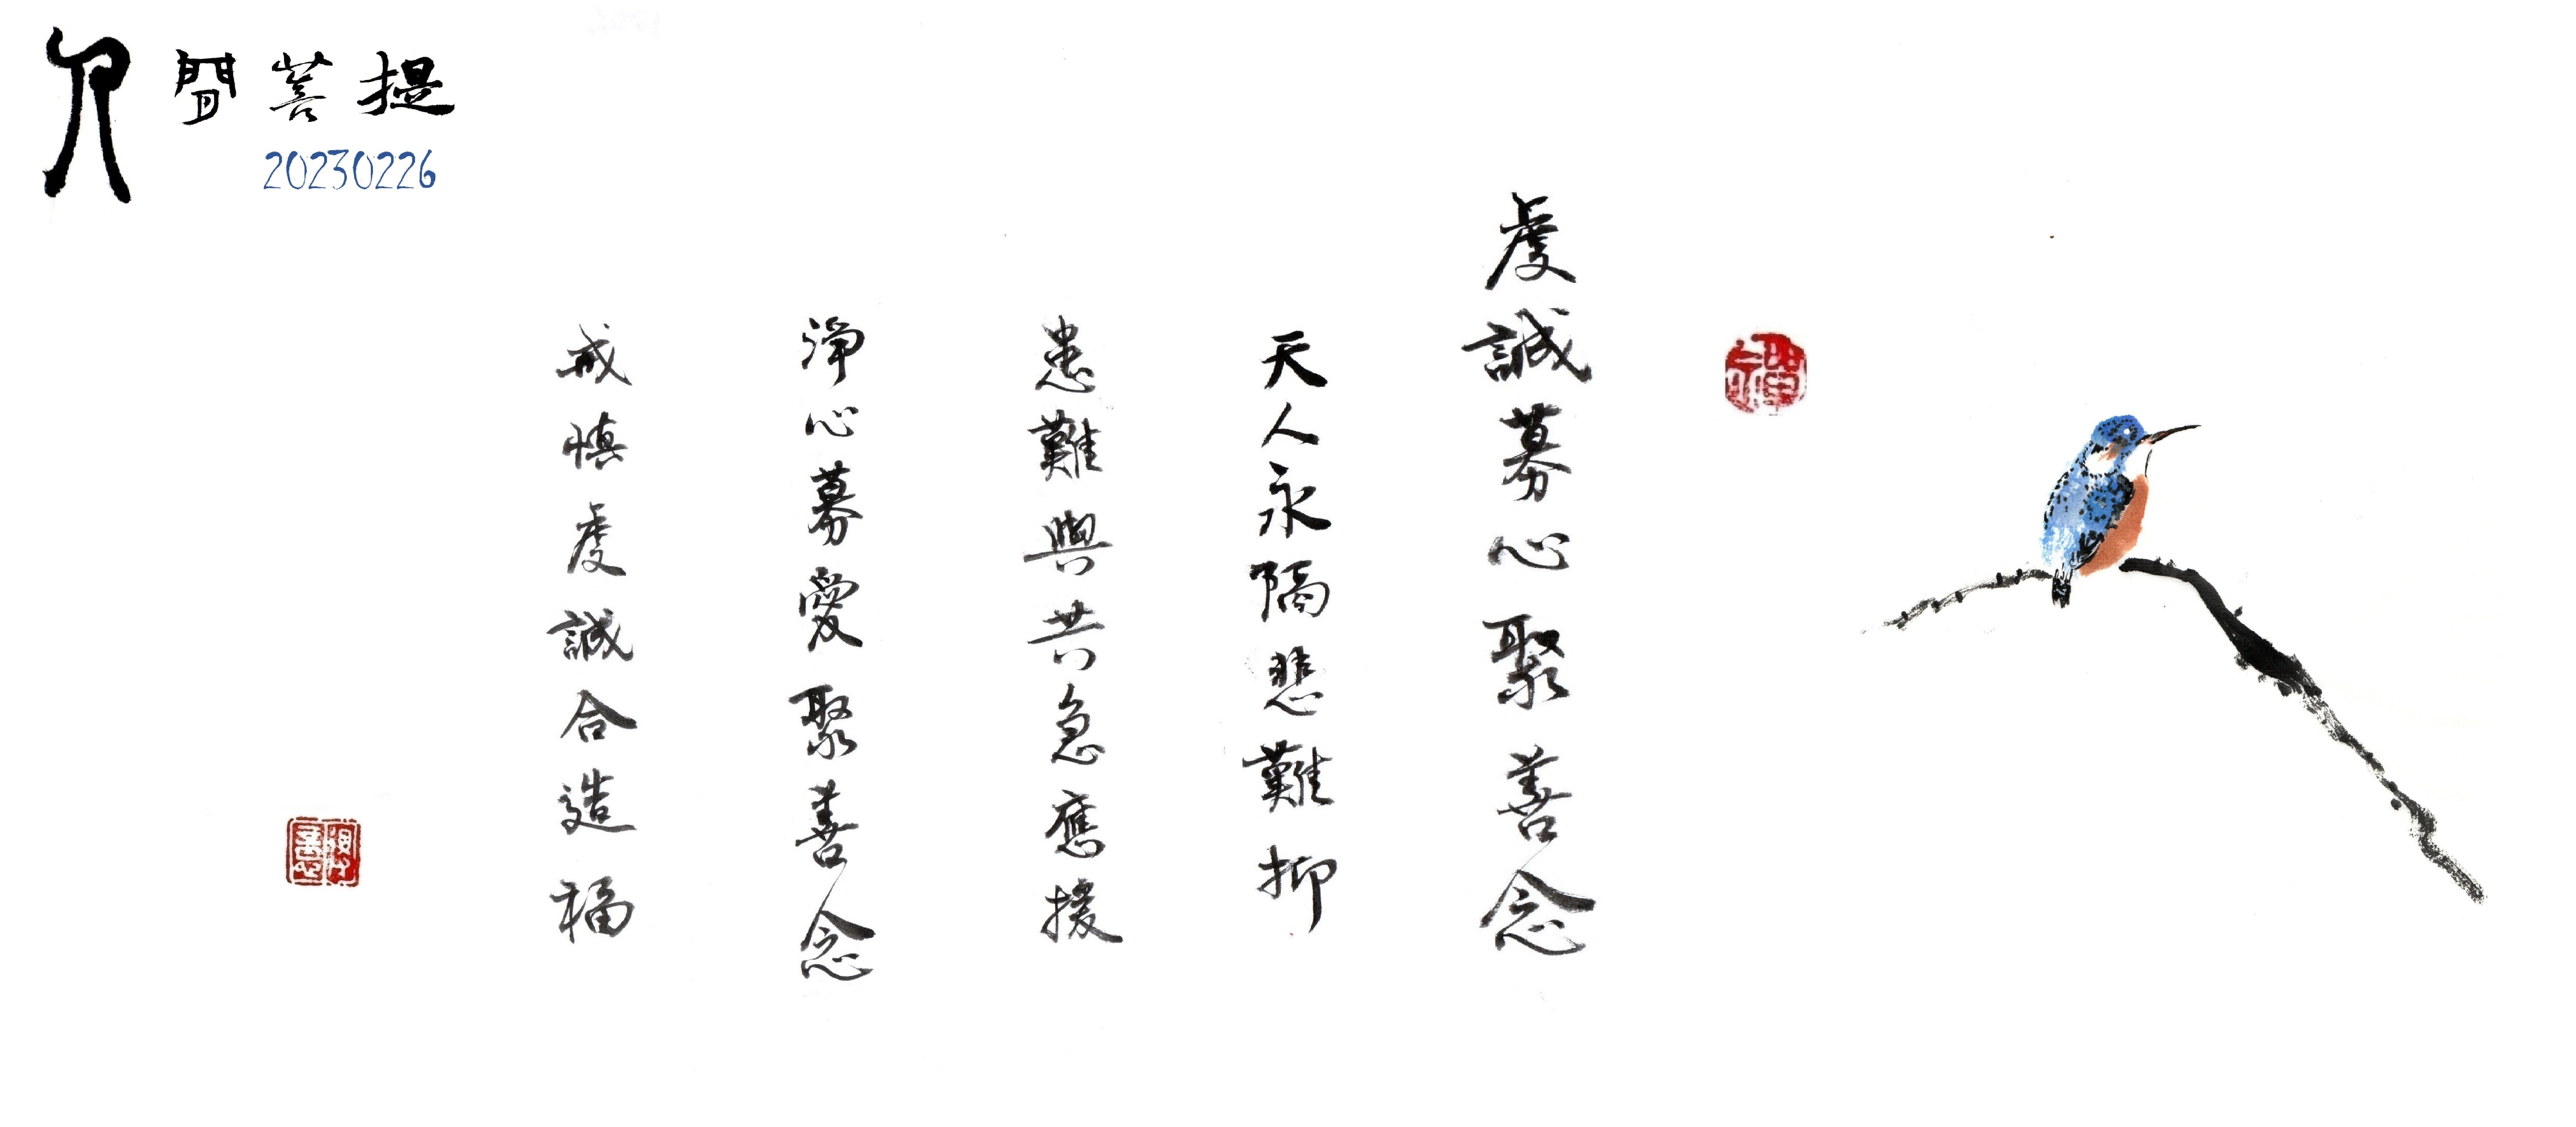 人間菩提
20230226
虔誠募心聚善念
天人永隔悲難抑
患難與共急應援
淨心募愛聚善念
戒慎虔誠合造福